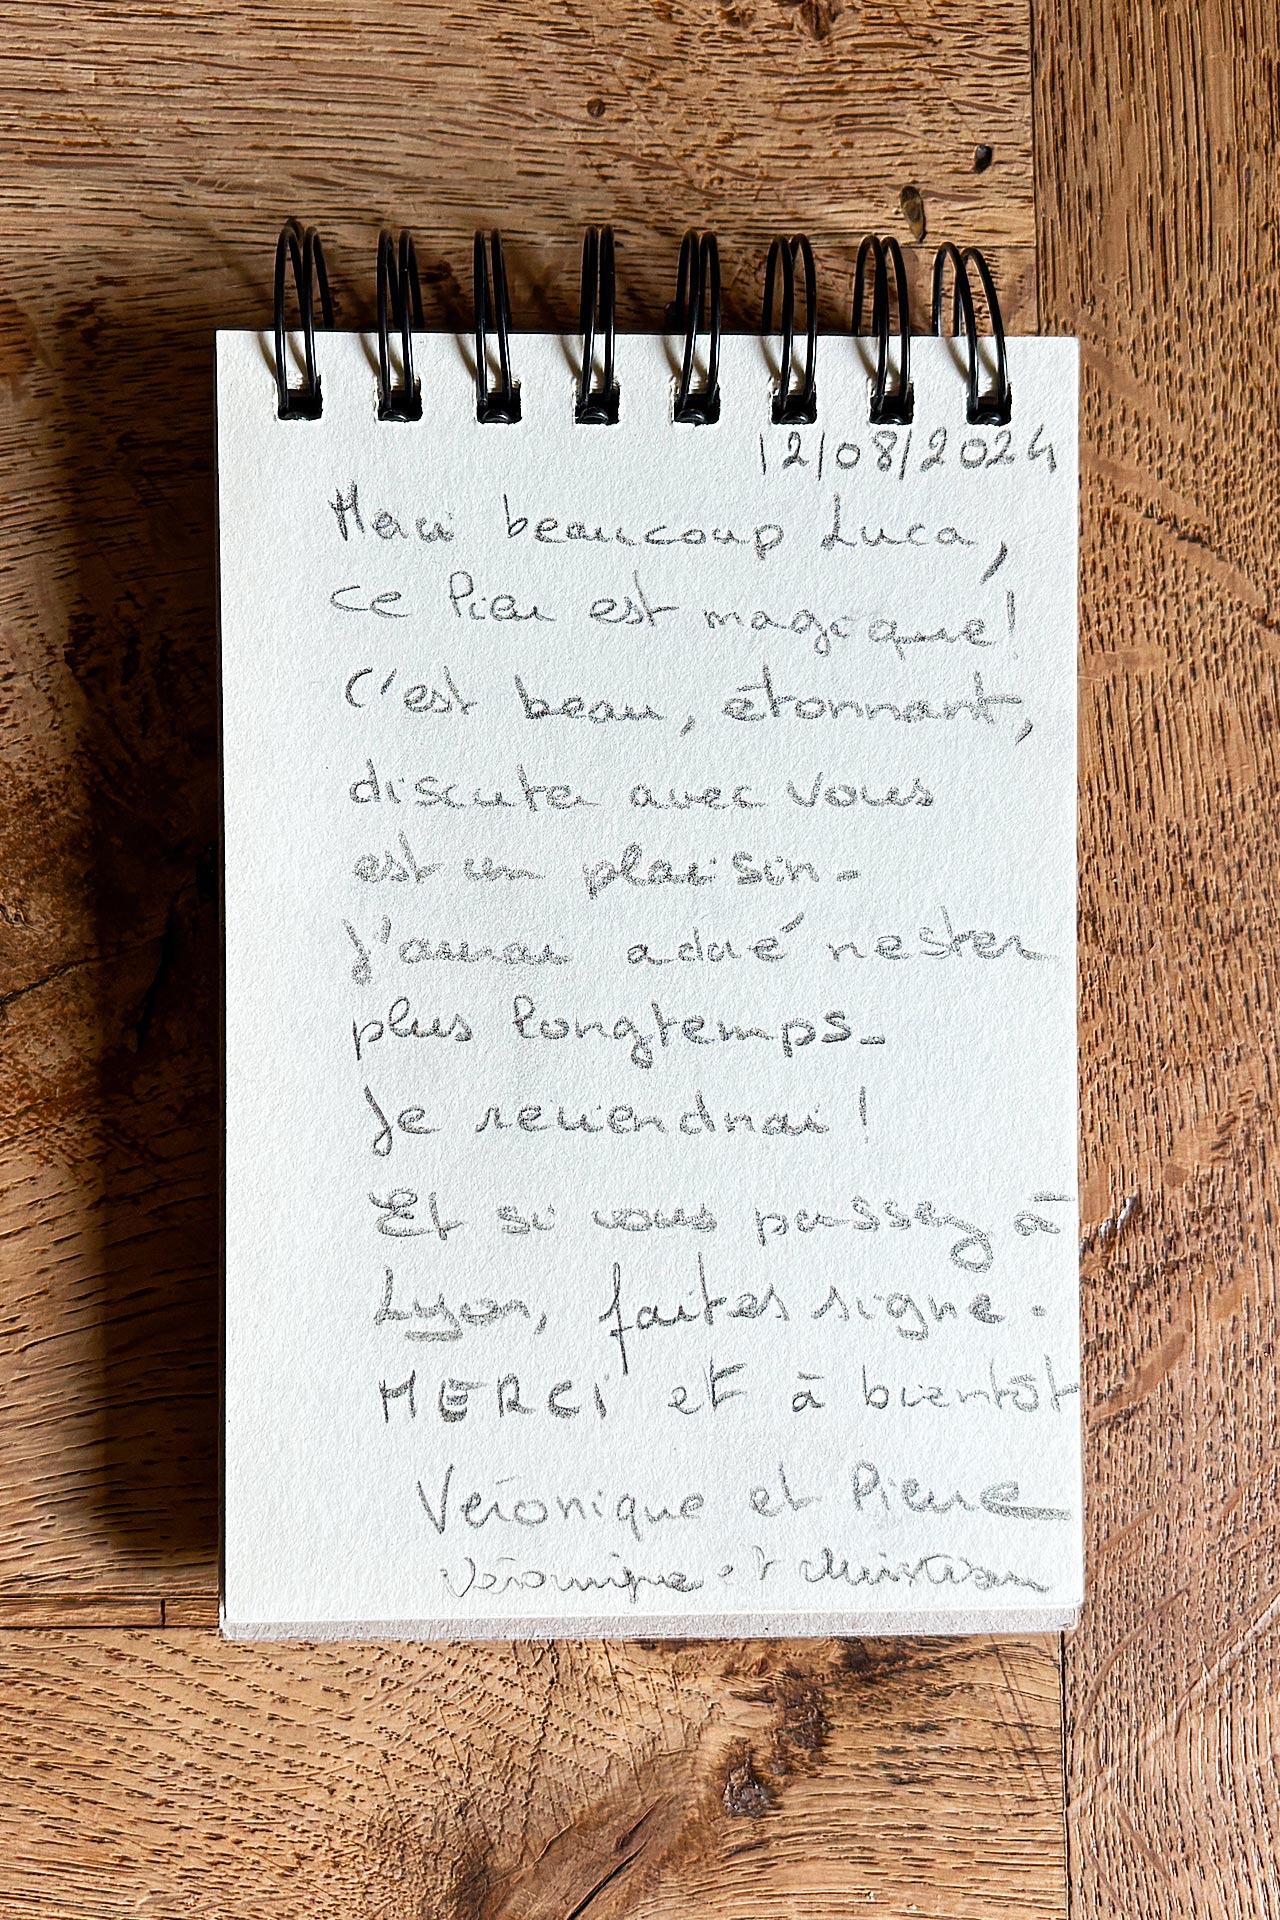 12/08/2024
Merci beaucoup Luca,
ce lieu est magique!
C'est beau, étonnant,
discuter avec vous
est un plaisir.
J'aurai adoré rester
plus longtemps.
Je reviendrai!
Et si vous passez à
Lyon, faites signe.
MERCI et à bientôt
Véronique et Pierre
Véronique et Christian